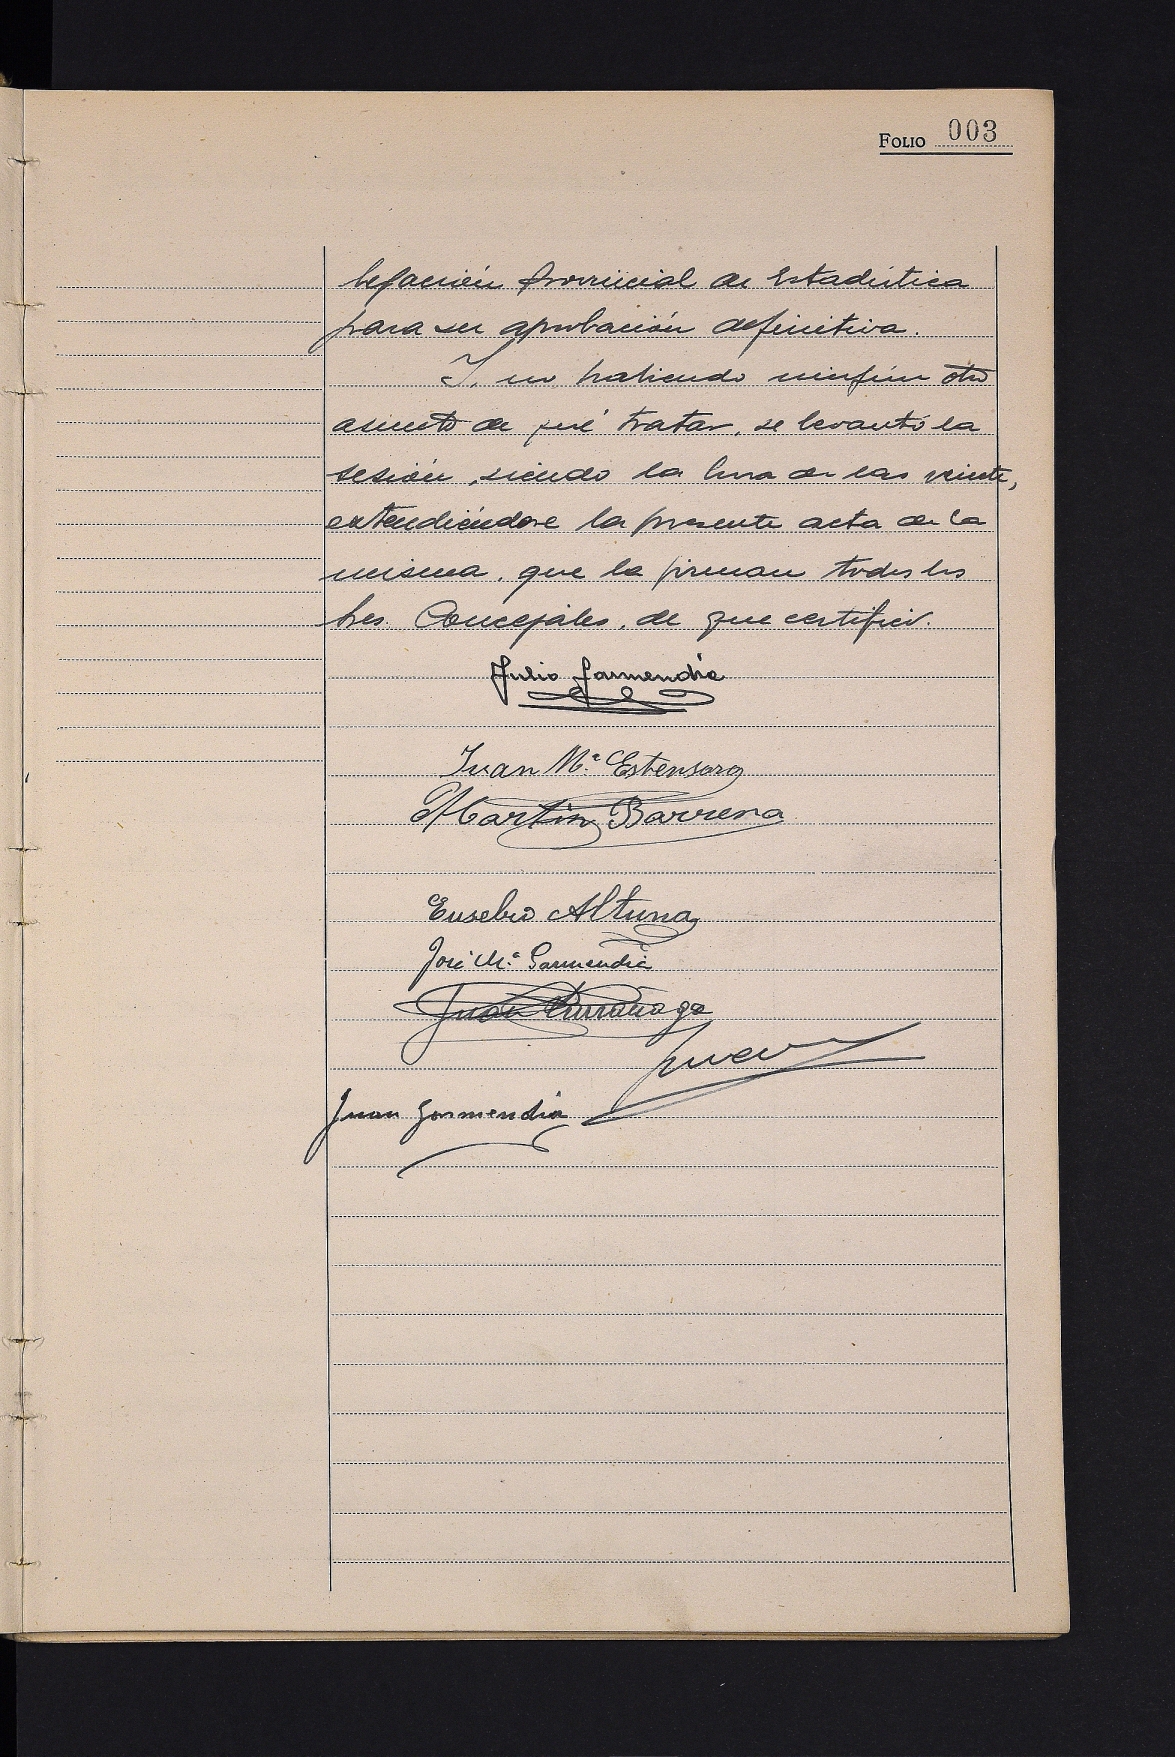 FOLIO 003
legación Provincial de Estadística
para su aprobación definitiva.
Y, no habiendo ningún otro
asunto de qué tratar, se levantó la
sesión, siendo la hora de las veinte,
extendiéndose la presente acta de la
misma, que la firman todos los
Sres. Concejales, de que certifico.
Julio Garmendia
Juan Mª Estensoro
Martín Barrena
Eusebio Altuna
José Mª Garmendia
Juan
Juan Garmendia